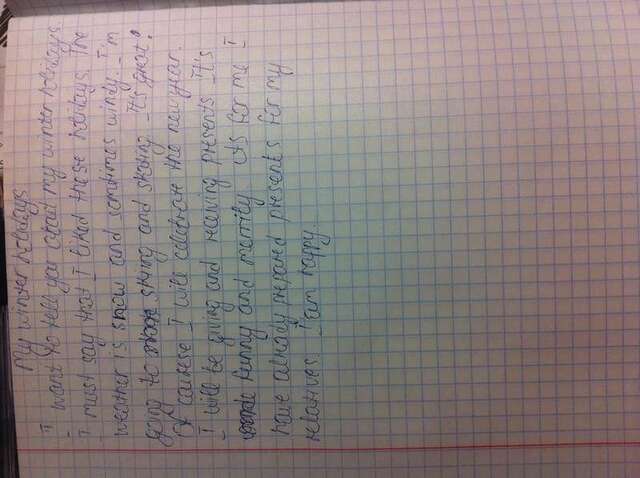 My winter holidays
I want to tell you about my winter holidays
I must say that I liked these holidays. The
weather is snow and sometimes windy. I'm
going to skiing and skating. It's great!
Of caurese I will celebrate the new year.
I will be giving and receiving presents. It's
funny and merrily. its for me I
have already prepared presents for my
relatives. I am happy